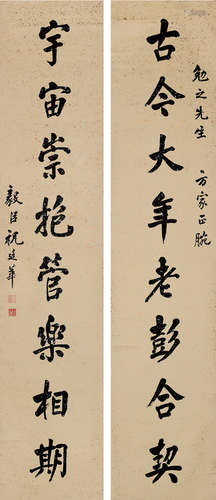 勉之先生 方家正腕
古今大年老彭合契
宇宙崇抱管樂相期
毅臣祝廷華